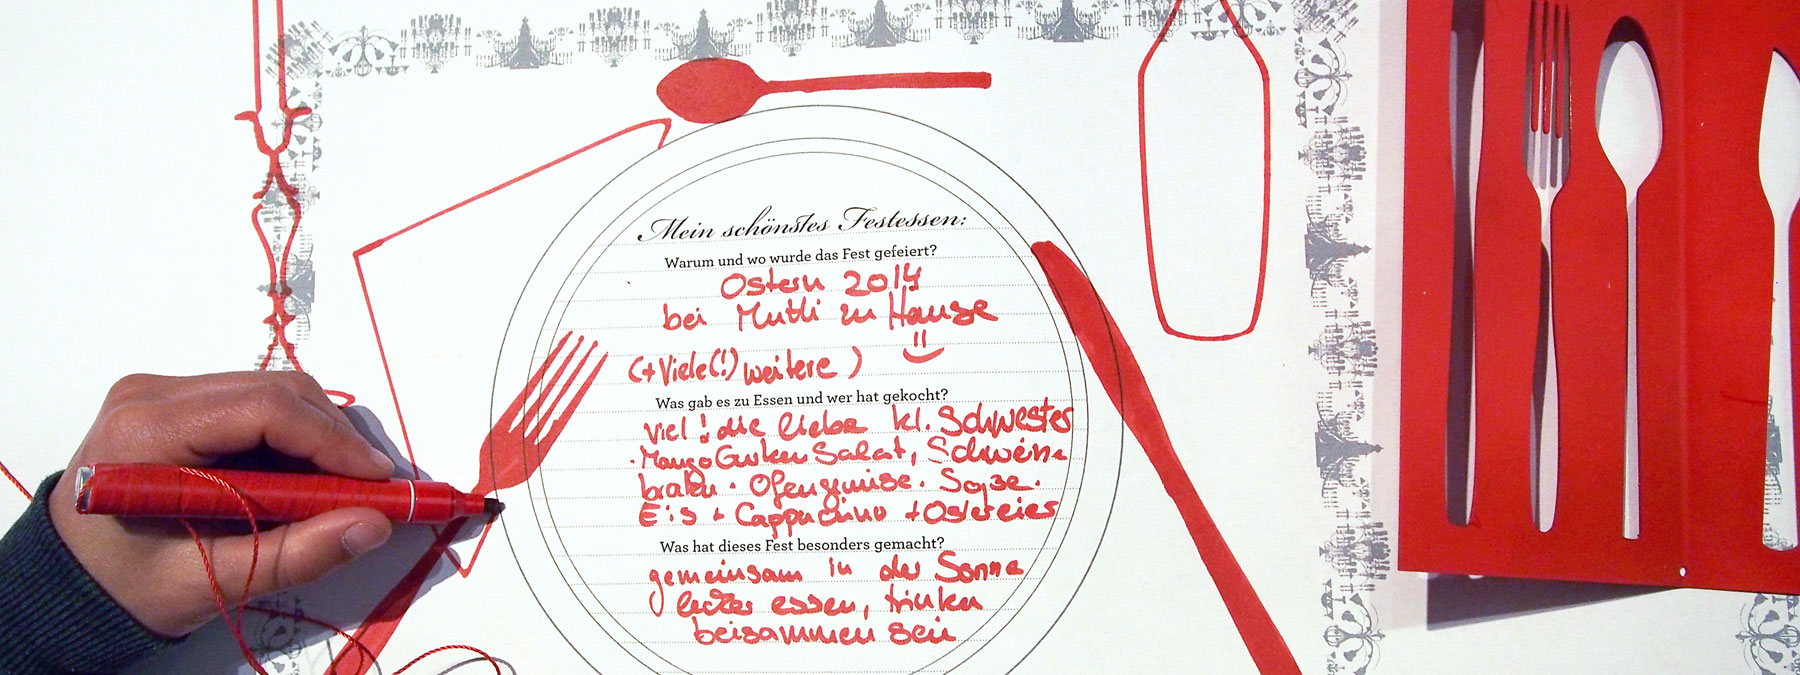 Mein schönstes Festessen:
Warum und wo wurde das Fest gefeiert?
Ostern 2014
bei Mutti zu Hause
(+ Viele(!) weitere )
Was gab es zu Essen und wer hat gekocht?
Viel! die liebe kl. Schwester
·Mango Gurken Salat, Schweine
braten · Ofengemüse · Soße ·
Eis + Cappuchino + Ostereier
Was hat dieses Fest besonders gemacht?
gemeinsam in der Sonne
lecker essen, trinken
beisammen sein